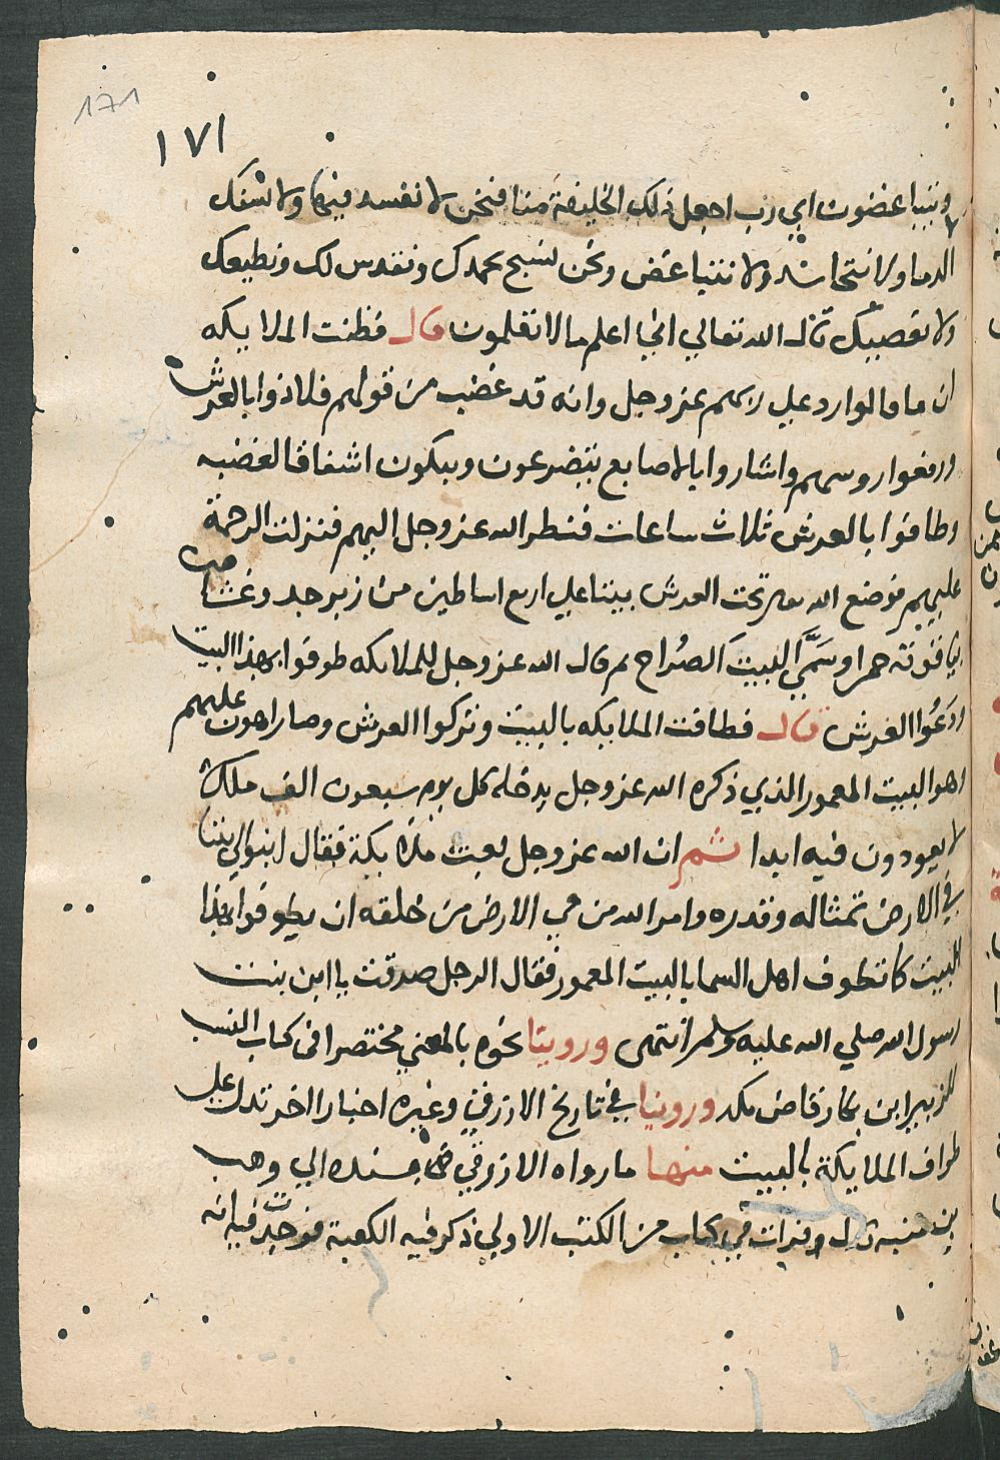 171
١٧١
ويتباغضون اي رب اجعل ذلك الخليفة منا فنحن لا نفسد فيها ولا نسفك
الدما ولا نتحاسد ولا نتباغض ونحن نسبح بحمدك ونقدس لك ونطيعك
ولا نعصيك قال الله تعالي اني اعلم ما لا تعلمون قال فظنت الملايكه
ان ما قالوا رد علي ربهم عز وجل وانه قد غضب من قولهم فلاذوا بالعرش
ورفعوا روسهم واشاروا بالاصابع يتضرعون ويبكون اشفاقا لغضبه
وطافوا بالعرش ثلاث ساعات فنظر الله عز وجل اليهم فنزلت الرحمة
عليهم فوضع الله تحت العرش بيتا علي اربع اساطين من زبرجد وغشاهن
بياقوته حمرا وسمي البيت الضراح ثم قال الله عز وجل للملايكه طوفوا بهذا البيت
ودعوا العرش قال فطافت الملايكه بالبيت وتركوا العرش وصار اهون عليهم
وهو البيت المعمور الذي ذكره الله عز وجل يدخله كل يوم سبعون الف ملك
لا يعودون فيه ابدا ثم ان الله عز وجل بعث ملايكة فقال ابنوا لي بيتا
في الارض بمثاله وقدره وامر الله من في الارض من خلقه ان يطوفوا بهذا
البيت كما تطوف اهل السما بالبيت المعمور فقال الرجل صدقت يا ابن بنت
رسول الله صلي الله عليه وسلم انتهى وروينا نحوه بالمعني مختصرا في كتاب النسب
للزبير ابن بكار قاضي مكه وروينا في تاريخ الازرقي وغيره اخبارا اخر تدل علي
طواف الملايكة بالبيت منها ما رواه الازرقي بسنده الي وهب
بن منبه قال وقرات في كتاب من الكتب الاولي ذكر فيه الكعبة فوجدت فيه انه